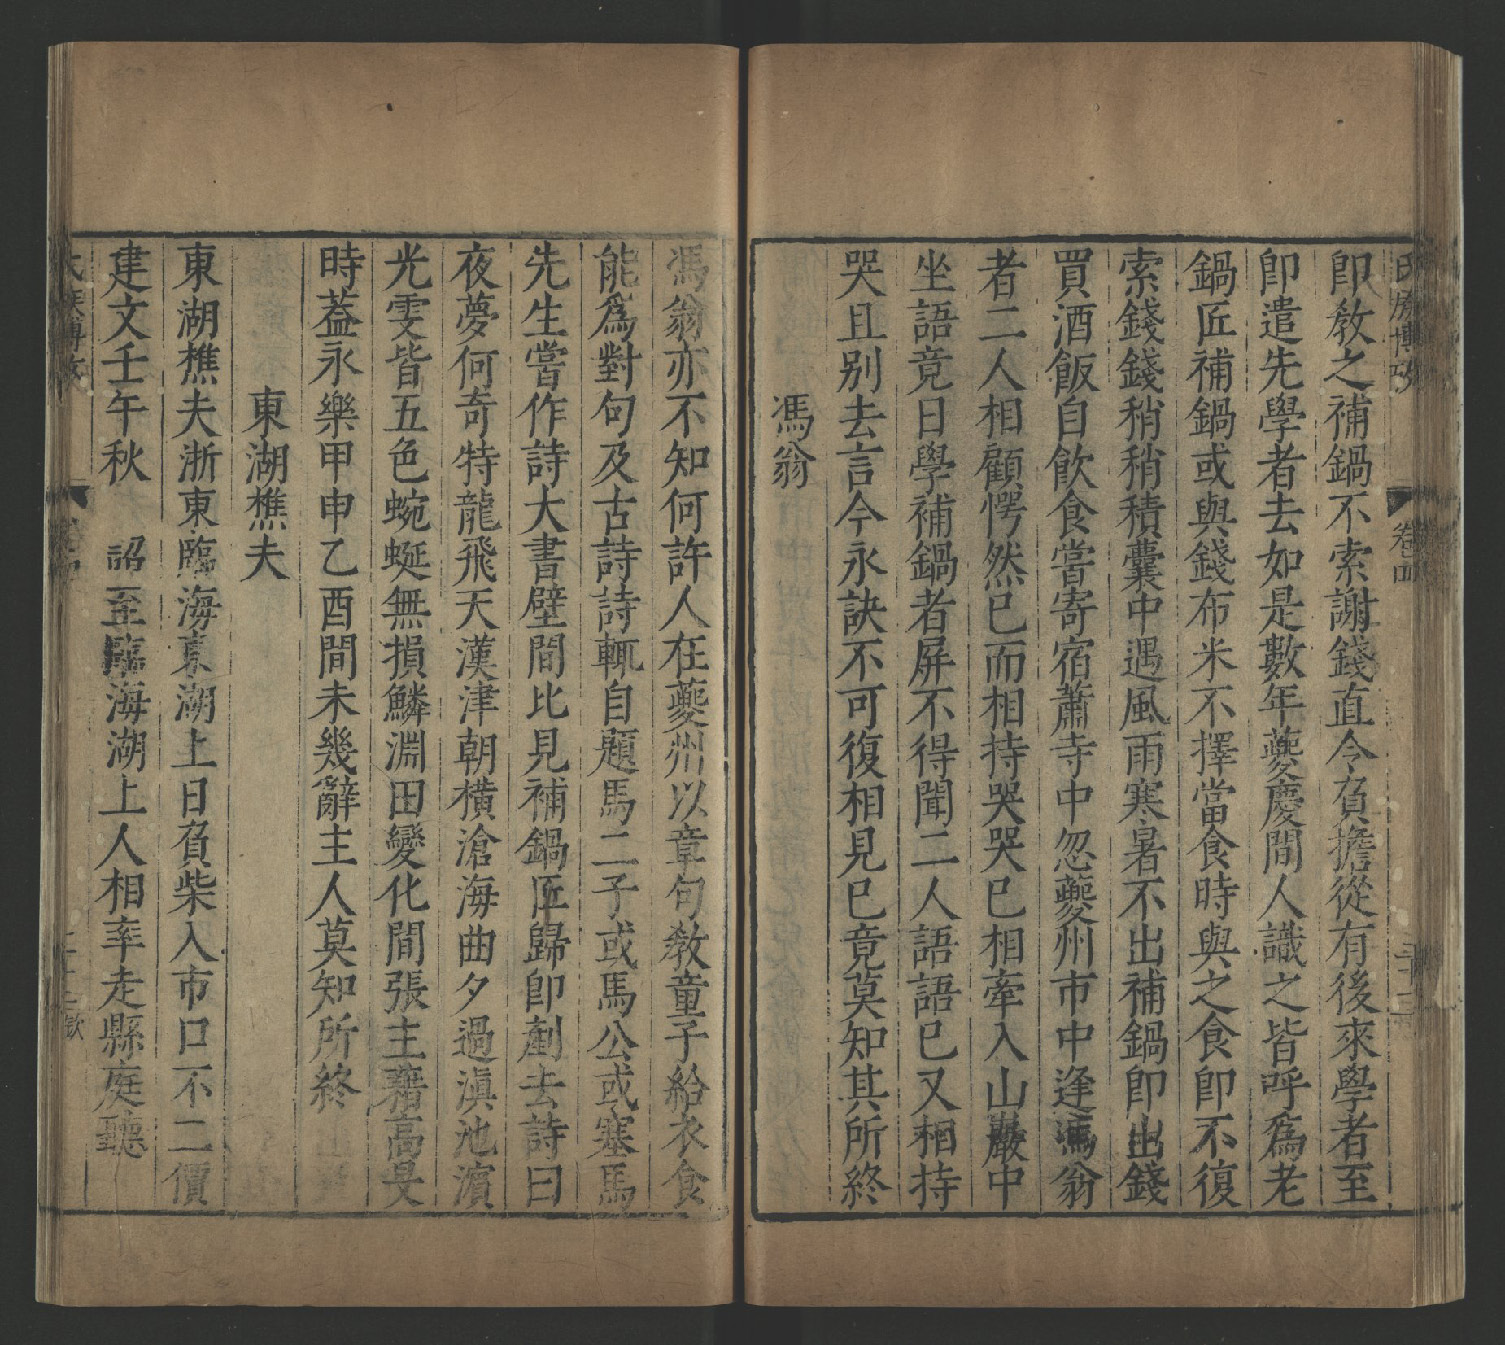 即敎之補鍋不索謝錢直令負擔從有後來學者至
即遣先學者去如是數年夔慶間人識之皆呼爲老
鍋匠補鍋或與錢布米不擇當食時與之食即不復
索錢錢稍稍積囊中遇風雨寒暑不出補鍋即出錢
買酒飯自飲食嘗寄宿蕭寺中忽夔州市中逢馮翁
者二人相顧愕然已而相持哭哭已相牽入山巖中
坐語竟日學補鍋者屏不得聞二人語語已又相持
哭且别去言今永訣不可復相見已竟莫知其所終
馮翁
馮翁亦不知何許人在夔州以章句敎童子給衣食
能爲對句及古詩詩輒自題馬二子或馬公或塞馬
先生嘗作詩大書壁間比見補鍋匠歸即剷去詩曰
夜夢何奇特龍飛天漢津朝橫滄海曲夕過滇池濱
光雯皆五色蜿蜒無損鱗淵田變化間張主藉高旻
時葢永樂甲申乙酉間未幾辭主人莫知所終
東湖樵夫
東湖樵夫浙東臨海東湖上日負柴入市口不二價
建文壬午秋 詔至臨海湖上人相率走縣庭聽
卷四